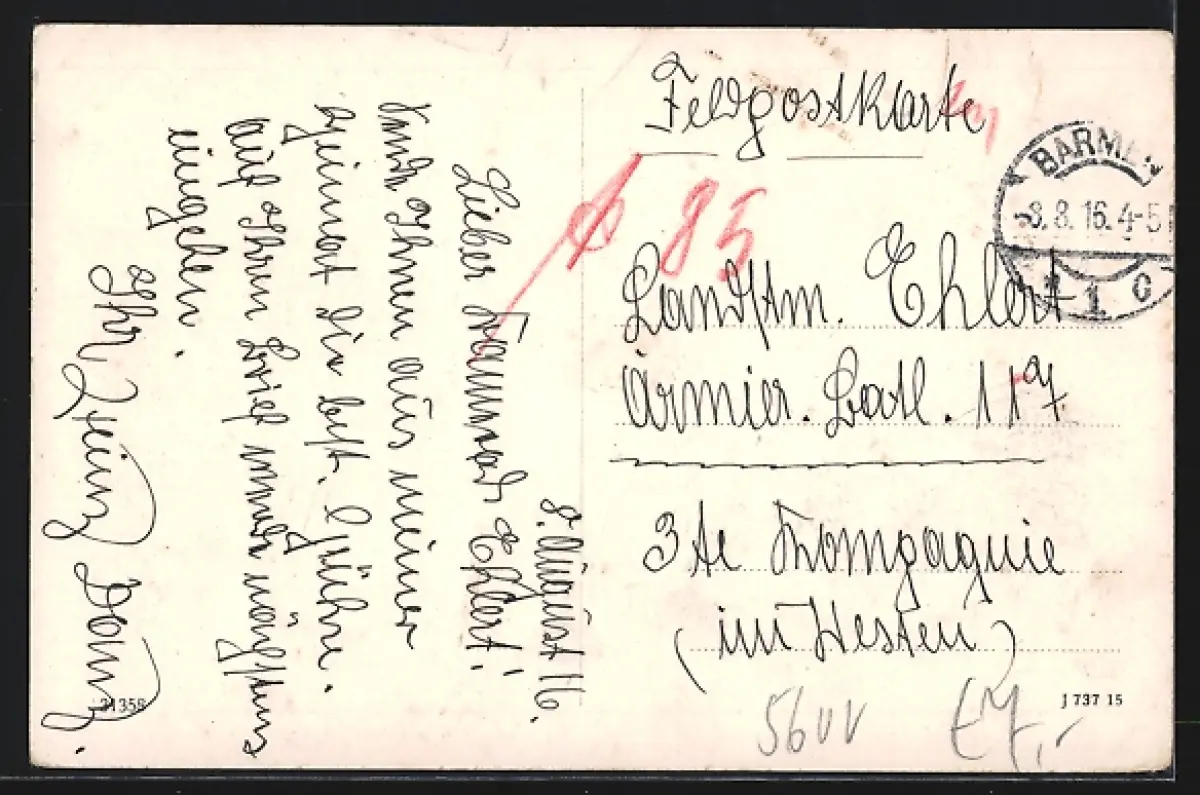 Feldpostkarte
BARMEN
-8.8.16.4-5
1 c
85
Landstm. Ehlert
Armier. Batl. 117
3te Kompagnie
(im Westen)
J 737 15
31358
8. August 16.
Lieber Kamerad Ehlert!
Sende Ihnen aus meiner
Heimat die best. Grüße.
auf Ihren Brief werde nächstens
eingehen.
Ihr Heinz